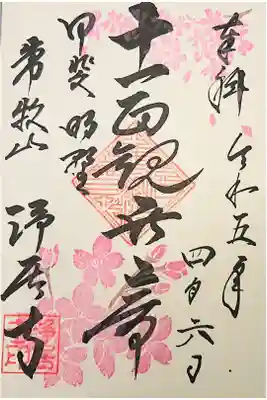 奉拝 令和五年
四月六日
十一面観世音
甲斐明野
常牧山
浄居寺